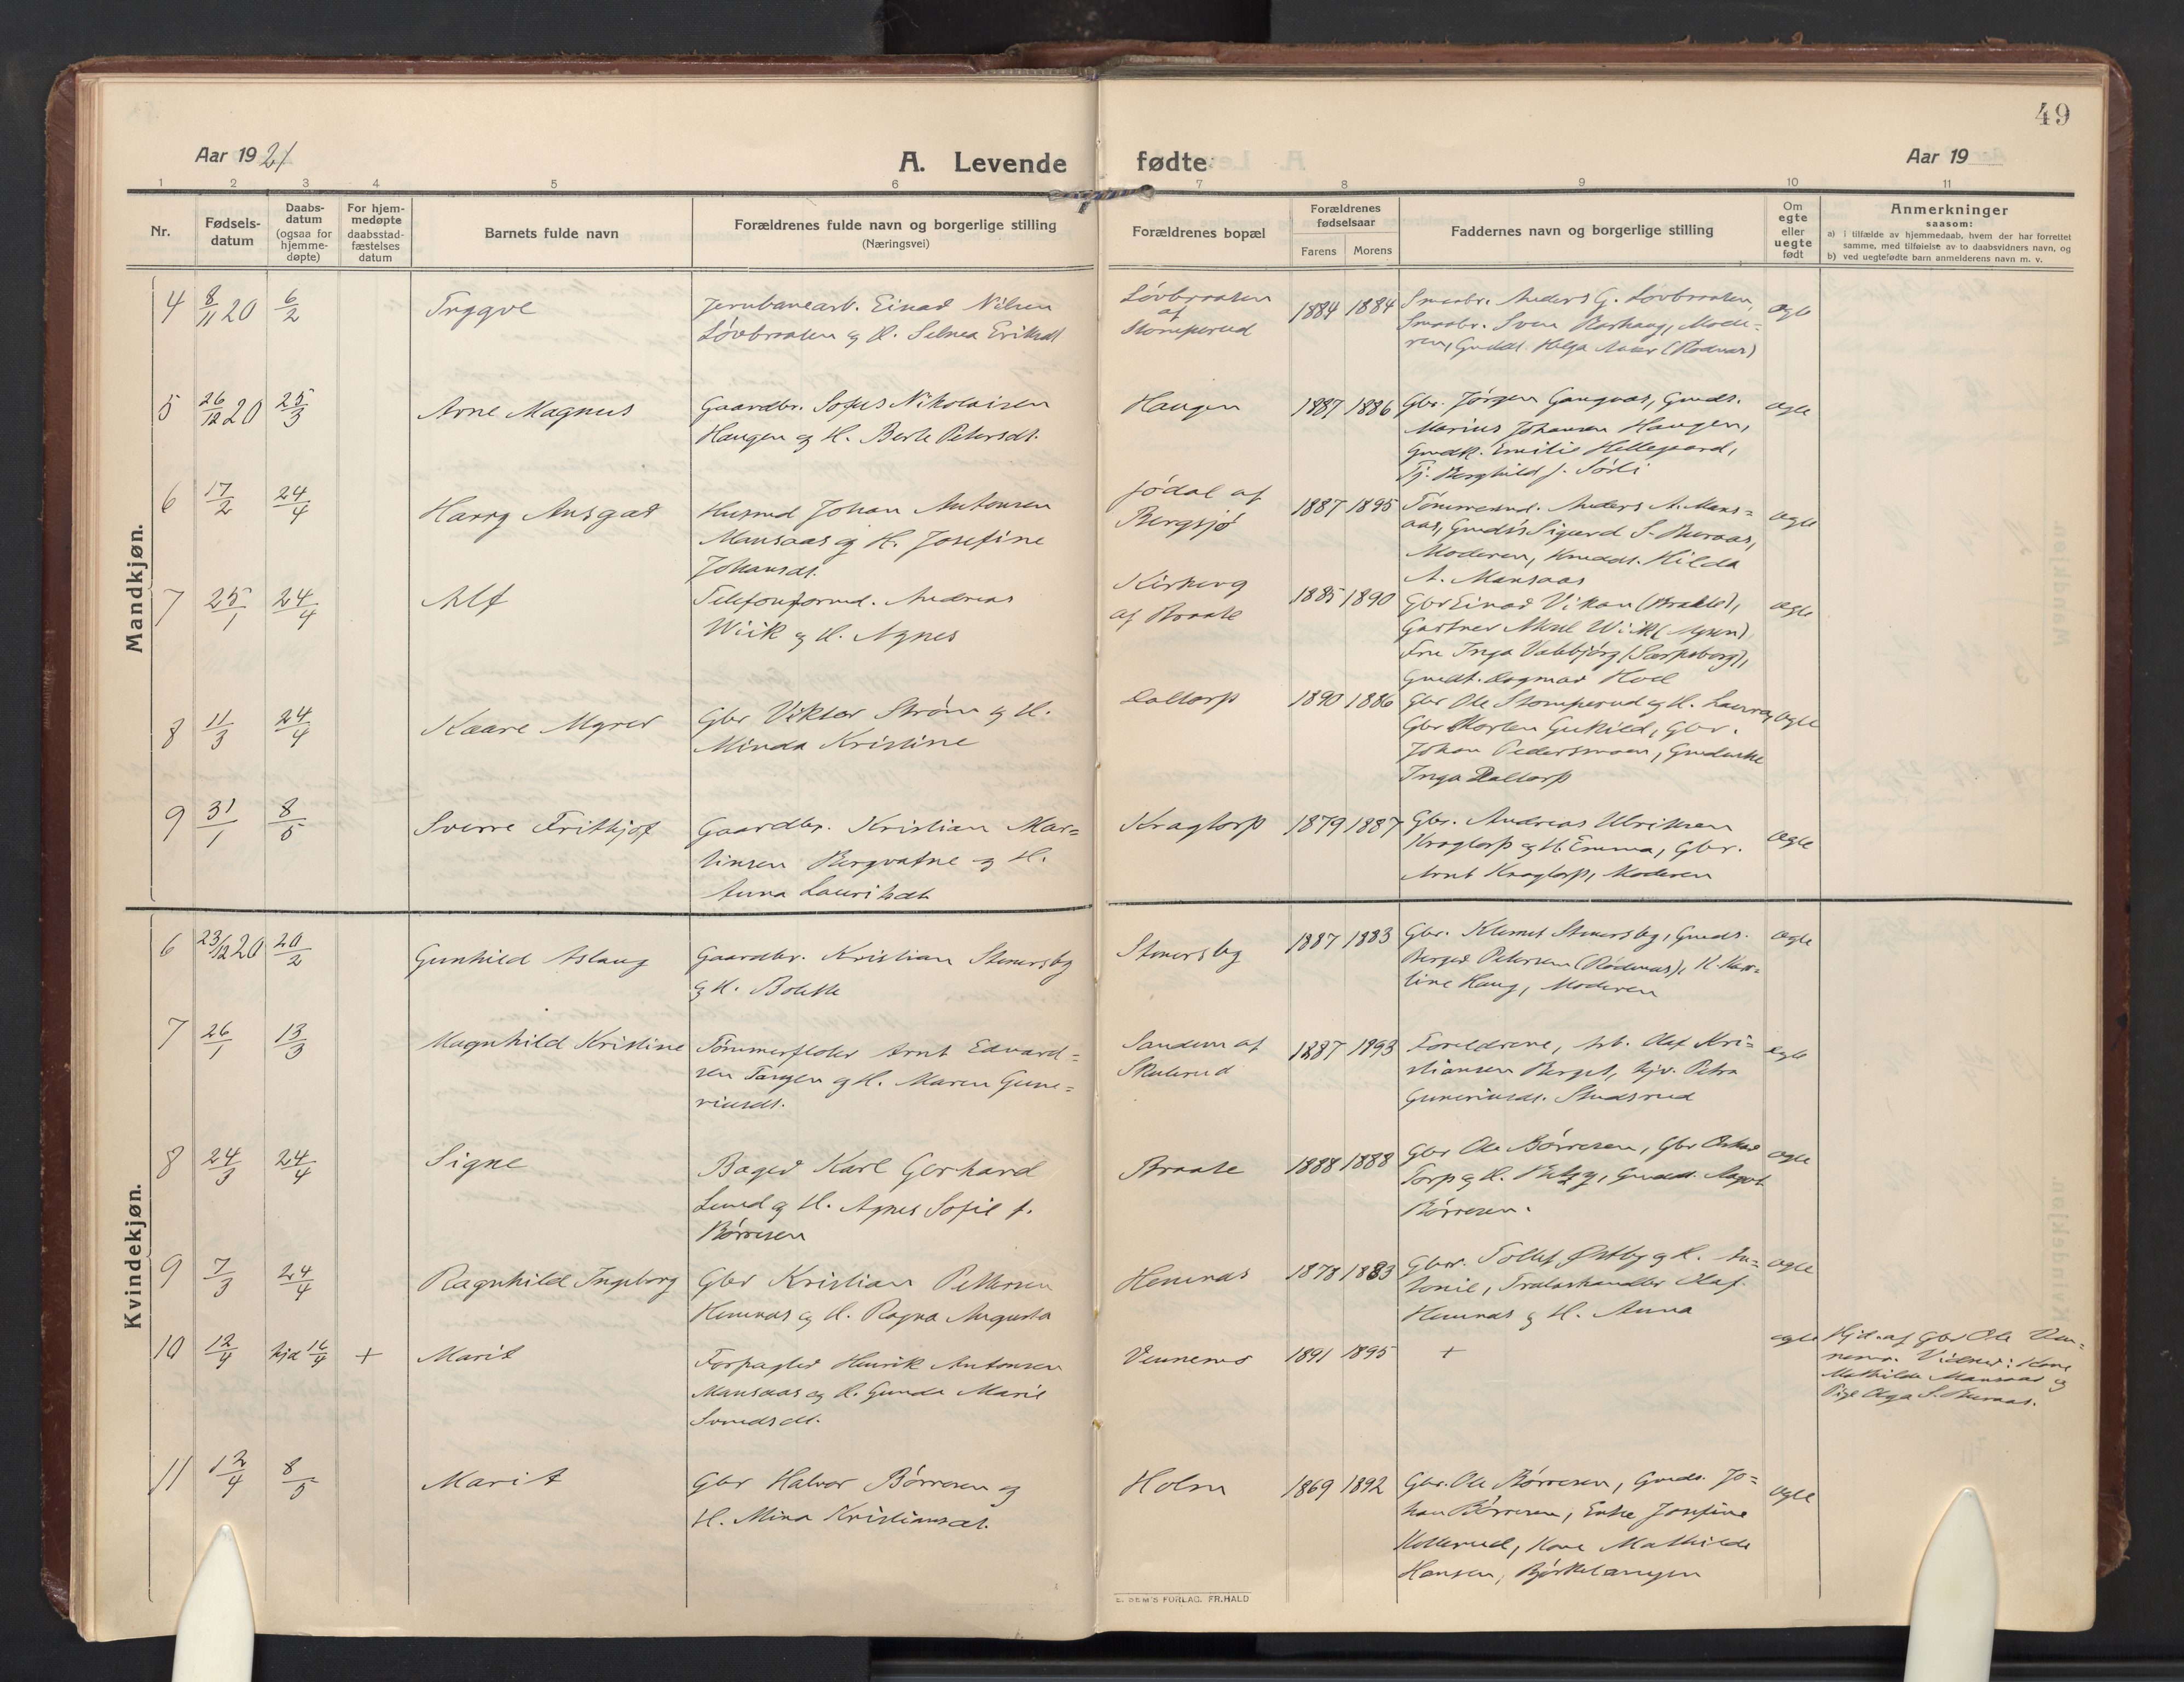 49
Aar 1921
A. Levende fødte.
Aar 19
1 2 3 4 5 6 7 8 9 10 11
Nr.
Fødsels-
datum
Daabs-
datum
(ogsaa for
hjemme-
døpte)
For hjem-
medøpte
daabsstad-
fæstelses
datum
Barnets fulde navn
Forældrenes fulde navn og borgerlige stilling
(Næringsvei)
Forældrenes bopæl
Forældrenes
fødselsaar
Farens Morens
Faddernes navn og borgerlige stilling
Om
egte
eller
uegte
født
Anmerkninger
saasom:
a) i tilfælde av hjemmedaab, hvem der har forrettet
samme, med tilføielse av to daabsvidners navn, og
b) ved uegtefødte barn anmelderens navn m. v.
Mandkjøn.
4 8/11 20 6/2 Tryggve
Jernbanearb. Einar Nilsen
Løvbraaten og H. Selma Eriksdt
Løvbraaten
af
Stomperud
1884 1884
Smaabr. Anders G. Løvbraaten,
Smaabr. Sven Moder-
ren, Helga
ægte
5 26/12 20 25/3 Arne Magnus
Gaardbr. Sofus Nikolaisen
Haugen og H. Berte Petersdt.
Haugen
1887 1886
Gbr. Jørgen Gangnæs, Gmds.
Marius Johansen Haugen,
Gmdk. Emilie Hellegaard,
Tj. Borghild J. Sørli
ægte
6 17/2 24/4 Harry Ansgar
Husmd Johan Antonsen
Mansaas og H. Josefine
Johansdt.
Jødal af
Bergsjø
1887 1895
Tømmermd. Anders A. Mans-
aas, Gmds Sigurd S. Buraas,
Moderen, Hilda
A. Mansaas
ægte
7 25/1 24/4 Alf
Telefonformd. Andreas
Wiik og H. Agnes
Kirkevg
af Braate
1885 1890
Gbr Einar Vikan (Brække),
Gartner Wiik
Fru Inga Vabbjørg (Sarpsborg),
Dagmar Hoel
ægte
8 11/3 24/4 Kaare Myrer
Gbr Viktor Strøm og H.
Minda Kristine
Daltorp
1890 1886
Gbr Ole Stomperud og H. Laura,
Gbr Morten Gukild, Gbr.
Johan Pedersmoen,
Inga Daltorp
ægte
9 31/1 8/5 Sverre Frithjof
Gaardbr. Kristian Mar-
tinsen Bergvatne og H.
Anna Lauritsdt
Kragtorp
1879 1887
Gbr. Andreas Ulriksen
Kragtorp og H. Emma, Gbr.
Arnt Kragtorp, Moderen
ægte
Kvindekjøn.
6 23/12 20 20/2 Gunhild Aslaug
Gaardbr. Kristian Stenersby
og H. Bolette
Stenersby
1887 1883
Gbr. Klemet Stenersby, Gmds.
Birger Petersen (Rødenæs), K. Kar-
line Haug, Moderen
ægte
7 26/1 13/3 Magnhild Kristine
Tømmerfløter Arnt Edvard-
sen Tangen og H. Maren Gune-
riusdt.
Sandum af
Skulerud
1887 1893
Foreldrene, Arb. Olaf Kri-
stiansen Berget, Hjv. Petra
Guneriusdt. Studsrud
ægte
8 24/3 24/4 Signe
Bager Karl Gerhard
Lund og H. Agnes Sofie f.
Børresen
Braate
1888 1888
Gbr Ole Børresen, Gbr Oskar
Torp og H. Betzy, Gmdd. Aagot
Børresen.
ægte
9 7/3 24/4 Ragnhild Ingeborg
Gbr Kristian Pettersen
Hemnæs og H. Ragna Augusta
Hemnæs
1878 1883
Gbr. Tollef Østby og H. An-
tonie, Trælasthandler Olaf
Hemnæs og H. Anna
ægte
10 12/4 hjd 16/4 + Marit
Forpagter Henrik Antonsen
Mansaas og H. Gunda Marie
Svendsdt.
Vennemo
1891 1895
+
ægte
Hjd. af Gbr Ole Ven-
nemo. Vidner: Kone
Mathilde Mansaas og
Pige Olga S. Buraas.
11 12/4 8/5 Marit
Gbr Halvor Børresen og
H. Mina Kristiansdt.
Holm
1869 1892
Gbr. Ole Børresen, Gmds. Jo-
han Børresen, Enke Josefine
Kollerud, Kone Mathilde
Hansen, Bjørkelangen
ægte
E. SEM'S FORLAG. FR.HALD